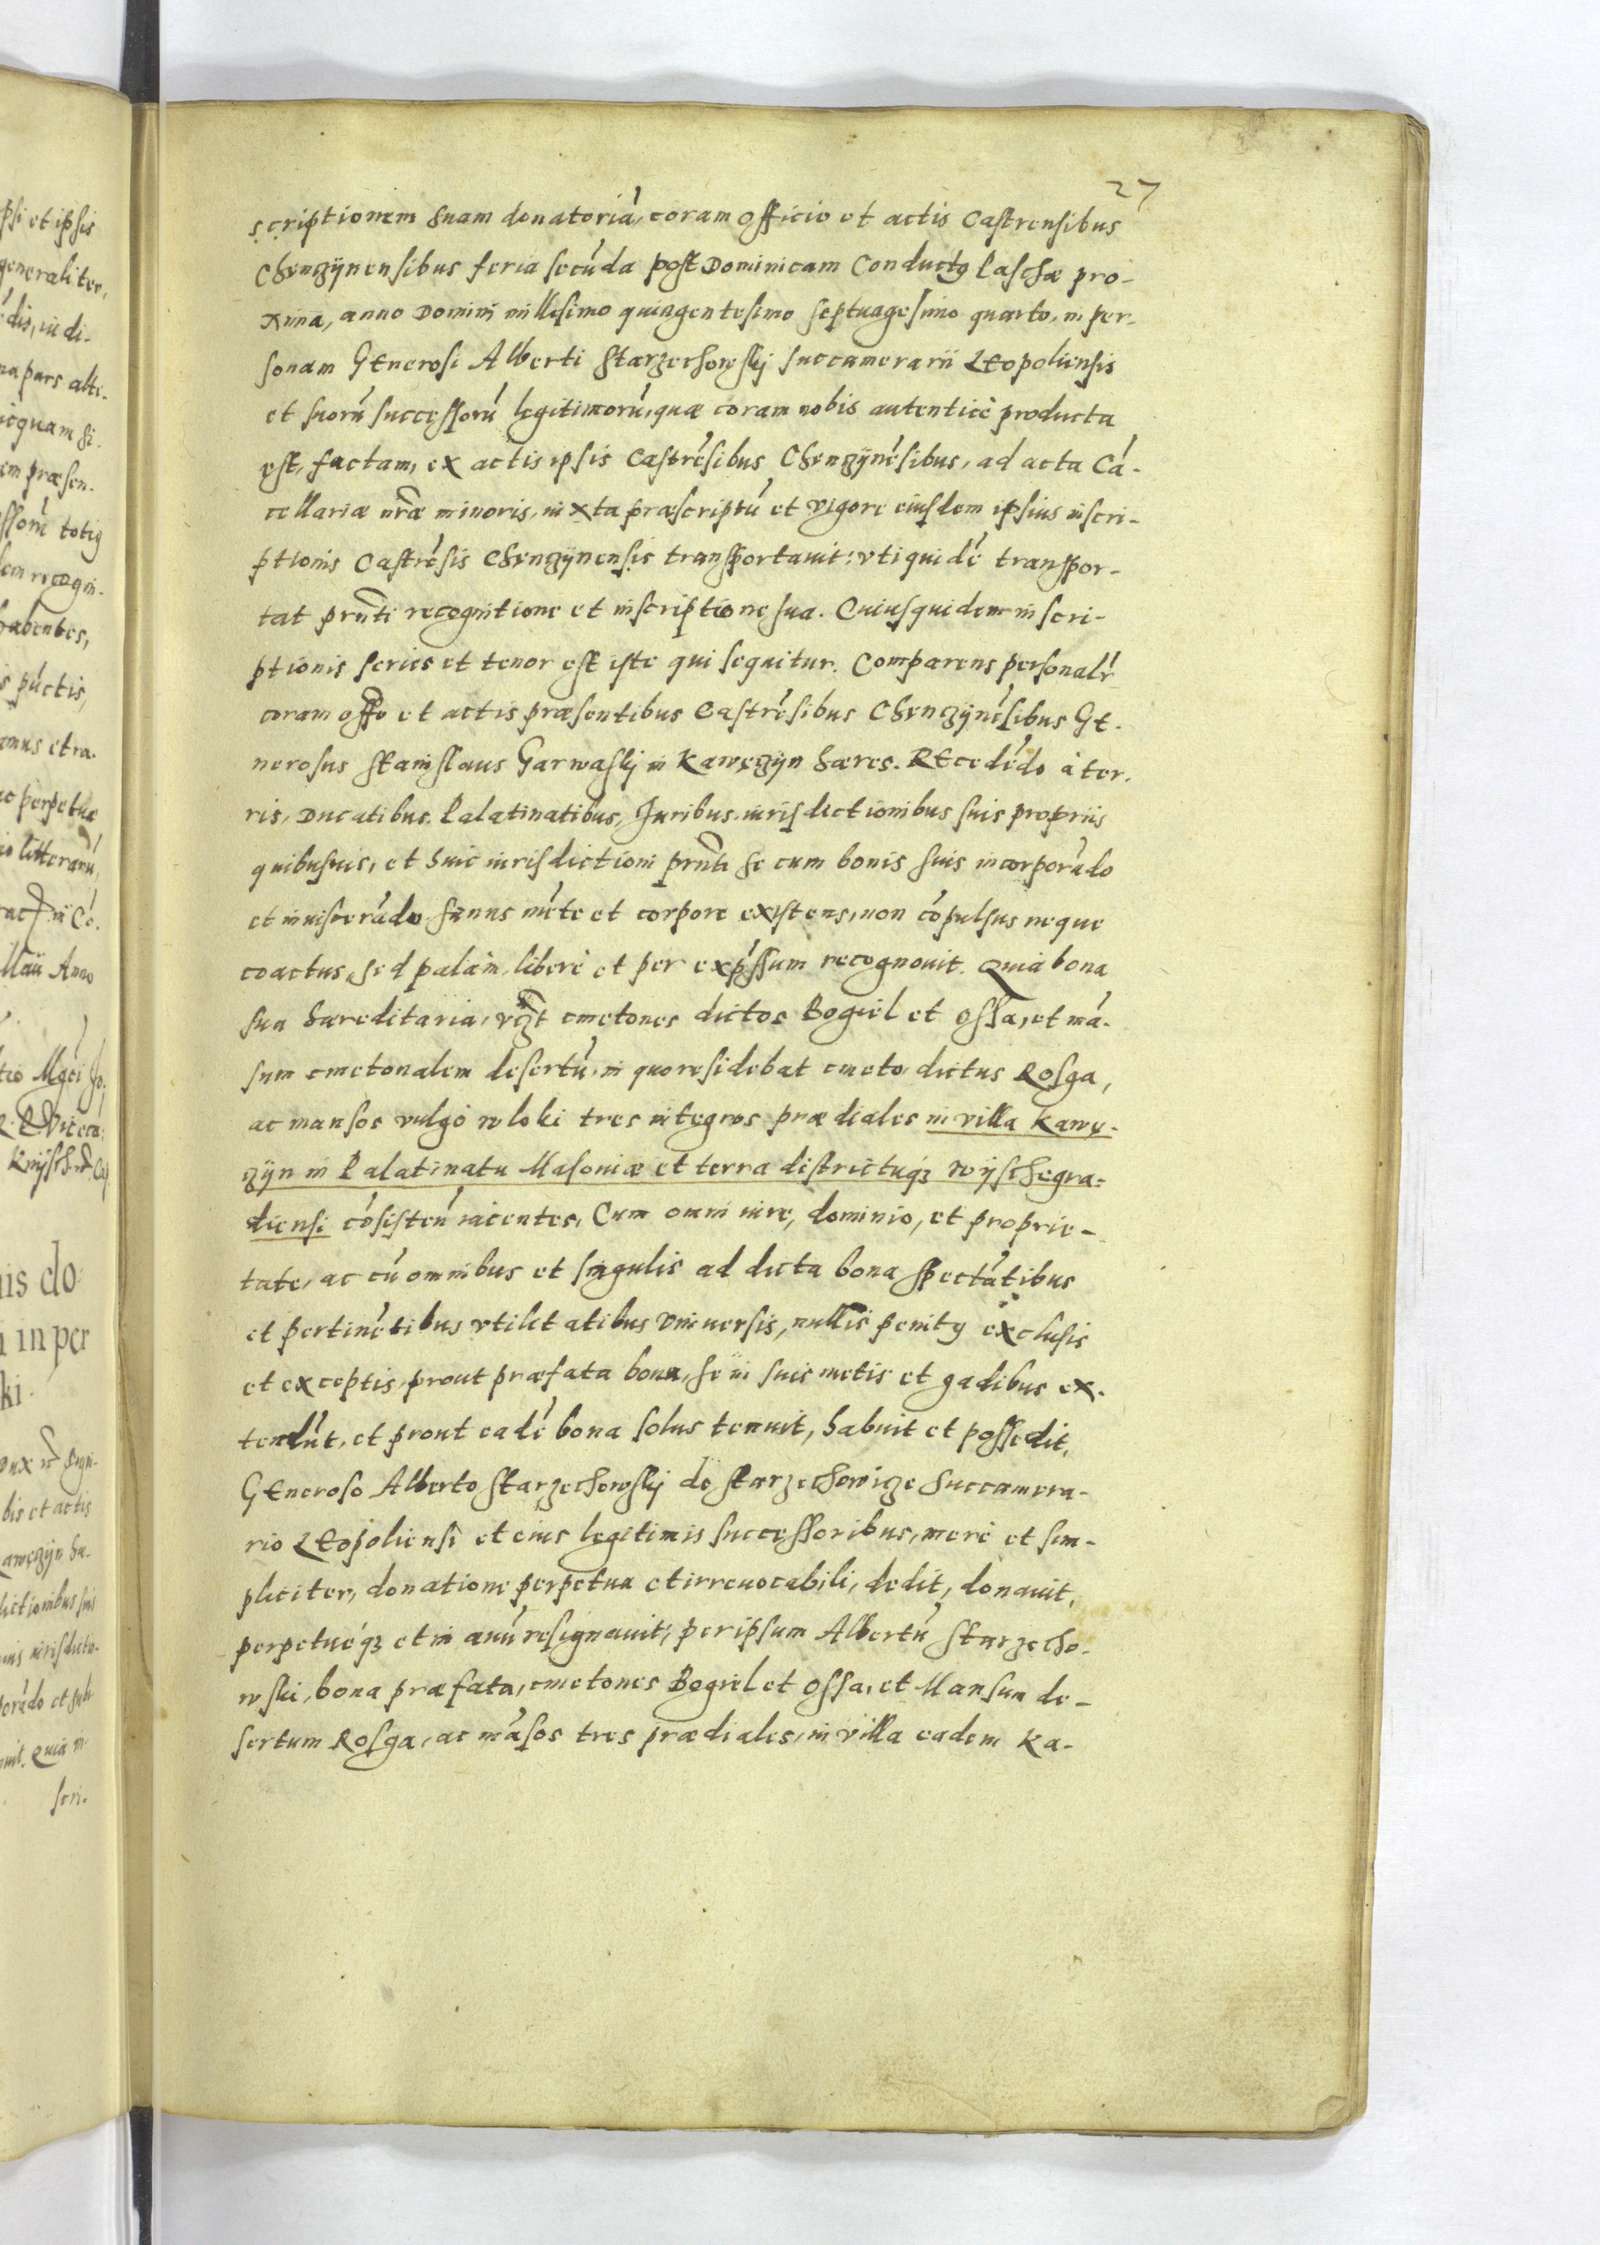 27
scriptionem suam donatoriā, coram officio et actis Castrensibus
Chenzÿnensibus feria secūda post Dominicam Conductꝰ Paschæ pro-
xima, anno Domini millesimo quingentesimo septuagesimo quarto, in per-
sonam GEnerosi Alberti Starzechowskÿ succamerarii LEopoliensis
et suorū successorū legitimorū, quæ coram nobis autenticè producta
est, factam, ex actis ipsis Castrēsibus Chenzÿnēsibus, ad acta Cā-
cellariæ nr̃æ minoris, iuxta præscriptū et vigore eiusdem ipsius inscri-
ptionis Castrēsis Chenzÿnensis transportauit: vti quidē transpor-
tat prñti recognitione et inscriptione sua. Cuiusquidem inscri-
ptionis series et tenor est iste qui sequitur. Comparens personalr̃
coram offo et actis præsentibus Castrēsibus Chenzÿnēsibus GE-
nerosus Stanislaus Garwaskÿ in Kawęzÿn hæres. REcedēdo à ter-
ris, Ducatibus, Palatinatibus, Juribus, iurisdictionibus suis proprijs
quibusuis, et huic iurisdictioni prñti se cum bonis suis incorporādo
et inuiscerādo sanus mēte et corpore existens, non cōpulsus neque
coactus, sed palàm, liberè et per exp̄ssum recognouit. Quia bona
sua hæreditaria, vꝫt cmetones dictos Bogiel et Ossa, et mā-
sum cmetonalem desertū, in quo residebat cmeto dictus Rosga,
ac mansos vulgò wloki tres integros prædiales in villa Kawę-
zÿn in Palatinatu Masoniæ et terra districtuqꝫ Wÿschegra-
diensi cōsisteñ iacentes, Cum omni iure, dominio, et proprie-
tate, ac cū omnibus et singulis ad dicta bona spectātibus
et pertinētibus vtilitatibus vniuersis, nullis penitꝰ exclusis
et exceptis, prout præfata bona, se in suis metis et gadibus ex-
tendūt, et prout eadē bona solus tenuit, habuit et possedit,
GEneroso Alberto Starzechowskÿ de Starzechowicze Succamera-
rio LEopoliensi et eius legitimis successoribus, merè et sim-
pliciter, donatione perpetua et irreuocabili, dedit, donauit,
perpetuéqꝫ et in æuū resignauit, per ipsum Albertū Starzecho-
wski, bona præfata, cmetones Bogiel et Ossa, et Mansum de-
sertum Rosga, ac māsos tres prædiales, in villa eadem Ka-